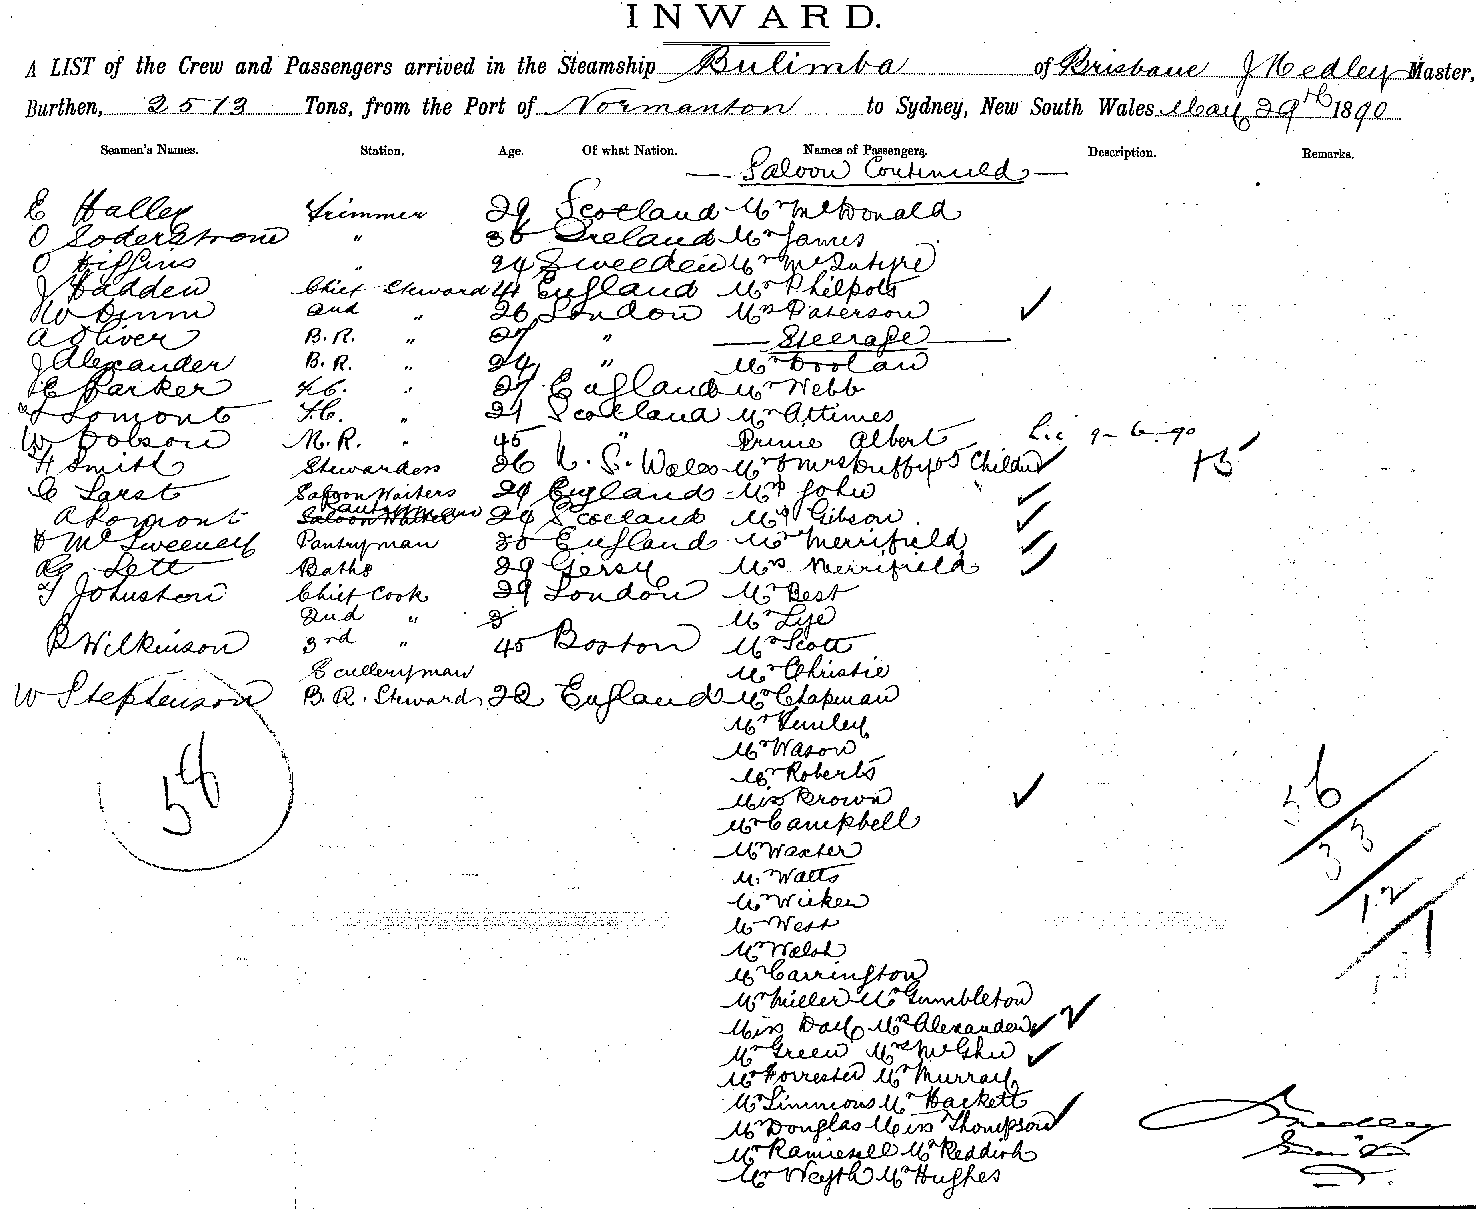 INWARD.
A LIST of the Crew and Passengers arrived in the Steamship Bulimba of Brisbane J Hedley Master,
Burthen, 2513 Tons, from the Port of Normanton to Sydney, New South Wales May 29th 1890
Seamen's Names. Station. Age. Of what Nation. Names of Passengers. Description. Remarks.
Saloon Continued
E Halley Trimmer 29 Scotland Mr McDonald
O Soderstrom " Ireland Mr James
O Higgins " 24 Sweeden Mr McIntyre
J Hadden Chief Steward 41 England Mr Philpots
W Dunn 2nd " 26 London Mrs Paterson ✓
A Oliver B.R. " 27 " Steerage
J Alexander B.R. " 24 " Mr Doolan
E Parker F.C. " 27 England Mr Webb
Lomont F.C. " 21 Scotland Mr Attimes
W Dobson M.R. " 45 " Prince Albert Lic 9-6-90
H Smith Stewardess 26 N. S. Wales Mr & Mrs Duffy & 5 Children ✓ +5 ✓
C Larst Saloon Waiters 29 England Mrs John ✓
A Lomont Pantryman 29 Scotland Mrs Gibson ✓
D McSweeney Pantryman 30 England Mr Merrifield ✓
G Lett Baths 29 Gersy Mrs Merrifield ✓
T Johnston Chief Cook 29 London Mr Best
2nd " Mr Lye
B Wilkinson 3rd " 45 Boston Mr Scott
Sculleryman Mr Christie
W Stephenson B.R. Steward 22 England Mr Chapman
Mr Tumley
Mr Wason
Mr Roberts
Miss Brown ✓
Mr Campbell
Mr Waxter
Mr Watts
Mr Wicken
Mr West
Mr Walsh
Mr Carrington
Mr Miller Mr Gumbleton
Miss Day Mrs Alexander ✓ ✓
Mr Green Mrs McGhee ✓
Mr Forrester Mr Murray
Mr Simmons Mr Hackett
Mr Douglas Miss Thompson ✓
Mr Ramiesell Mr Reddish
Mr Weyth Mr Hughes
56
33
12
1
J Hedley